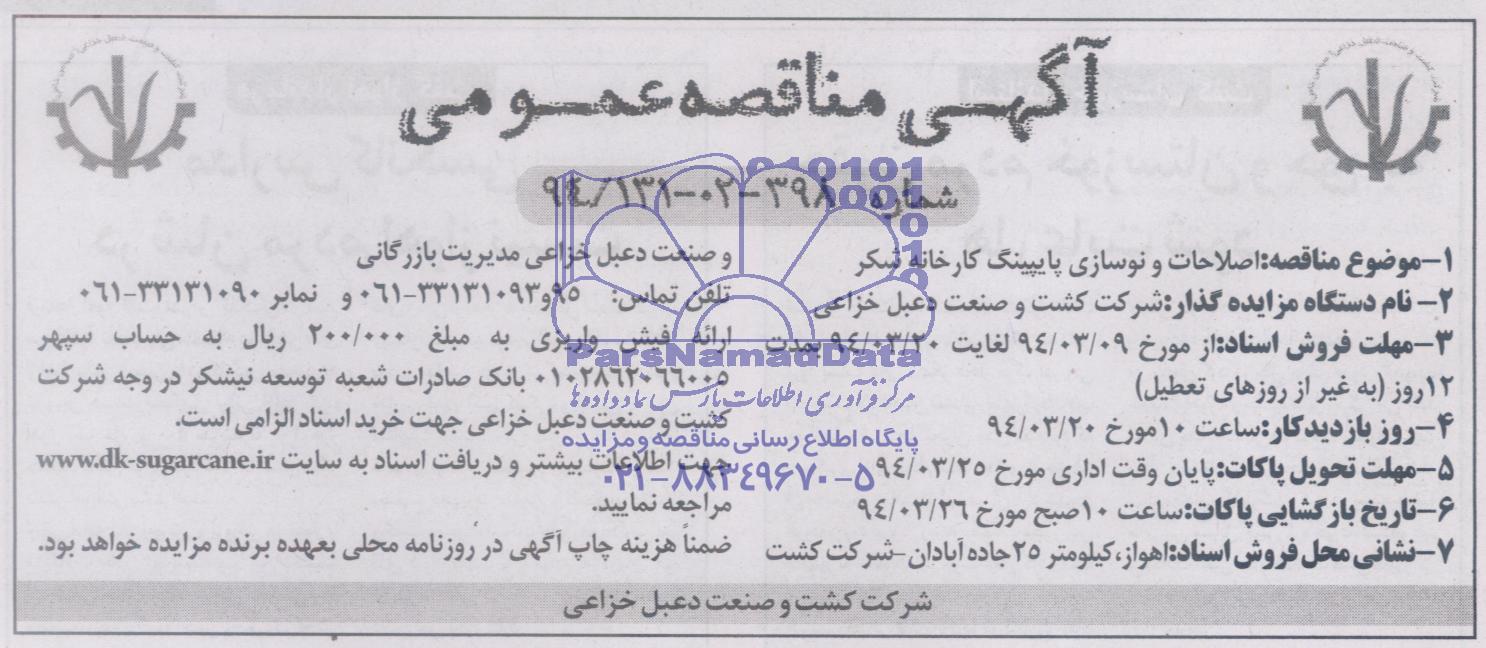 آگهی مناقصه عمومی
شماره ۳۹۸-۰۲-۱۳۱/۹٤
۱-موضوع مناقصه:اصلاحات و نوسازی پایپینگ کارخانه شکر
۲- نام دستگاه مزایده گذار:شرکت کشت و صنعت دعبل خزاعی
۳-مهلت فروش اسناد:از مورخ ۹٤/۰۳/۰۹ لغایت ۹٤/۰۳/۲۰ بمدت
۱۲روز (به غیر از روزهای تعطیل)
۴-روز بازدیدکار:ساعت ۱۰مورخ ۹٤/۰۳/۲۰
۵-مهلت تحویل پاکات:پایان وقت اداری مورخ ۹٤/۰۳/۲۵
۶-تاریخ بازگشایی پاکات:ساعت ۱۰صبح مورخ ۹٤/۰۳/۲٦
۷-نشانی محل فروش اسناد:اهواز،کیلومتر ۲۵جاده آبادان-شرکت کشت
و صنعت دعبل خزاعی مدیریت بازرگانی
تلفن تماس: ۹۵و۳۳۱۳۱۰۹۳-۰٦۱ و نمابر ۳۳۱۳۱۰۹۰-۰٦۱
ارائه فیش واریزی به مبلغ ۲۰۰/۰۰۰ ریال به حساب سپهر
۰۱۰۲۸٦۲۰٦٦۰۰۵ بانک صادرات شعبه توسعه نیشکر در وجه شرکت
کشت و صنعت دعبل خزاعی جهت خرید اسناد الزامی است.
جهت اطلاعات بیشتر و دریافت اسناد به سایت www.dk-sugarcane.ir
مراجعه نمایید.
ضمناً هزینه چاپ آگهی در روزنامه محلی بعهده برنده مزایده خواهد بود.
شرکت کشت و صنعت دعبل خزاعی
ParsNamadData
مرکز فرآوری اطلاعات پارس نماد داده ها
پایگاه اطلاع رسانی مناقصه و مزایده
۰۲۱-۸۸۳٤۹٦۷۰-۵